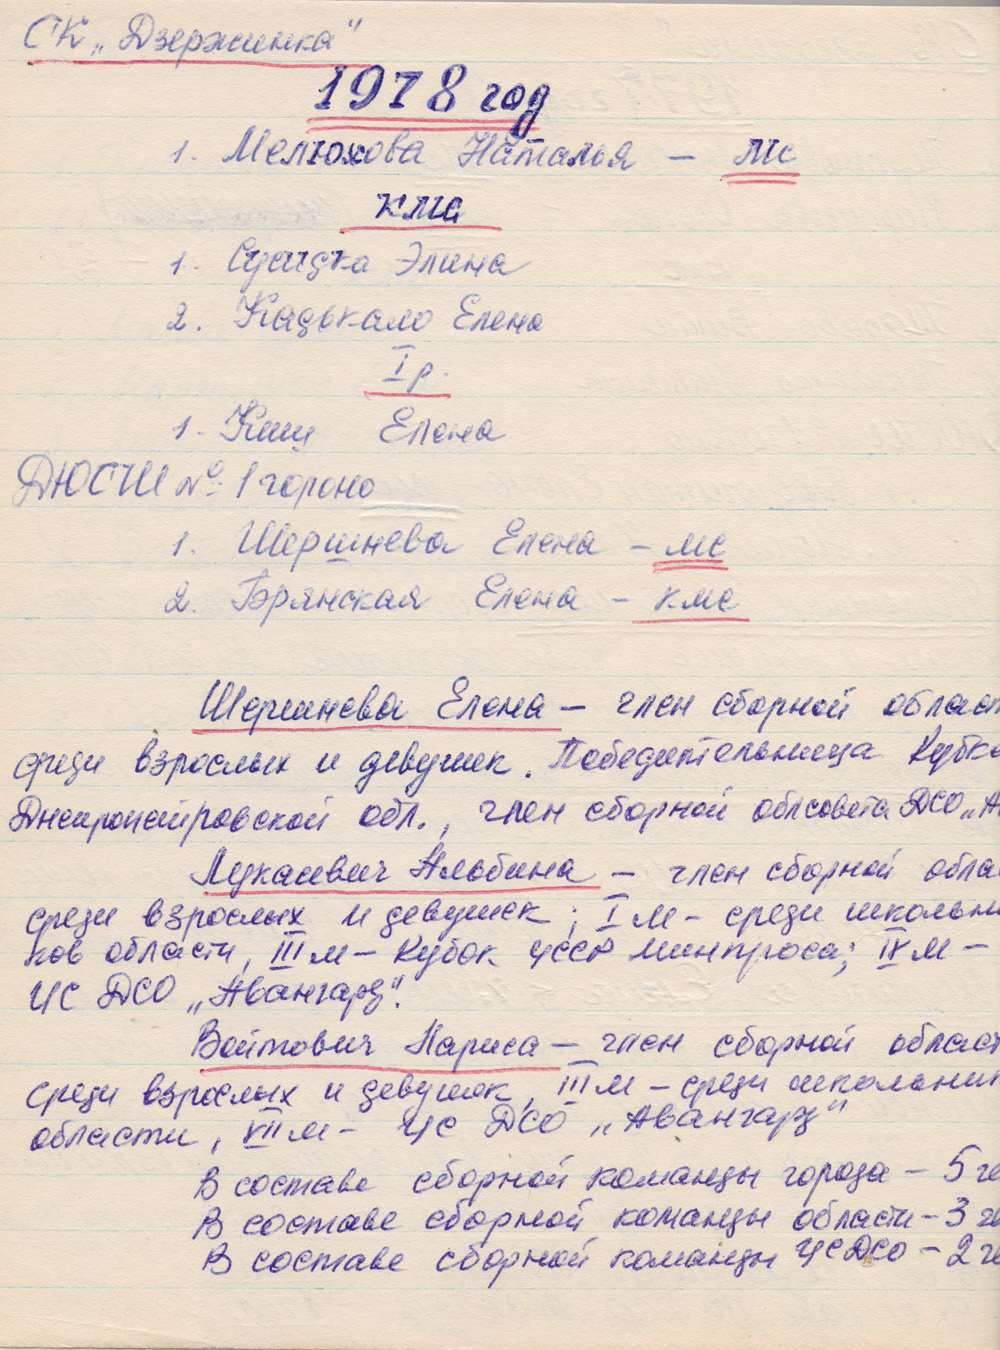 СК „Дзержинка"
1978 год
1. Мелюхова Наталья — мс
КМС
1. Элина
2. Кадькало Елена
I р.
1. Киш Елена
ДЮСШ № 1 гороно
1. Шершнева Елена — мс
2. Брянская Елена — кмс
Шершнева Елена — член сборной област
среди взрослых и девушек. Победительница Кубка
Днепропетровской обл., член сборной облсовета ДСО „Ав
Лукашевич Альбина — член сборной обла
среди взрослых и девушек; I м — среди школьни
ков области, III м — Кубок УССР минпроса; IV м —
ЦС ДСО „Авангард".
Войтович Лариса — член сборной област
среди взрослых и девушек, III м — среди школьни
области, VII м — ЦС ДСО „Авангард"
В составе сборной команды города — 5 че
В составе сборной команды области — 3 че
В составе сборной команды ЦС ДСО — 2 че